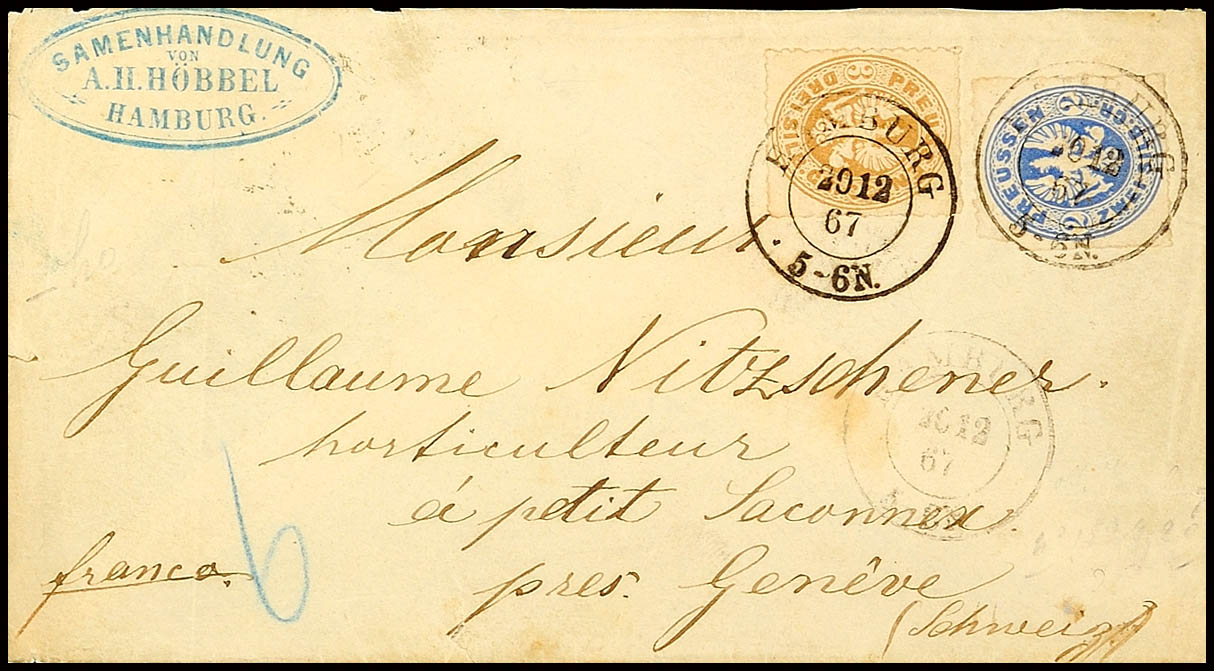 SAMENHANDLUNG
VON
A.H. HÖBBEL
HAMBURG.
DREI SILB.GR. 3 PREUSSEN
HAMBURG
2012
67
5-6N.
PREUSSEN 2 SILB.GR. ZWEI 2
HAMBURG
2012
67
5-6N.
Monsieur
Guillaume Nitzschener.
horticulteur
á petit Saconnex.
pres. Genêve
(Schweiz)
franco.
6
HAMBURG
2012
67